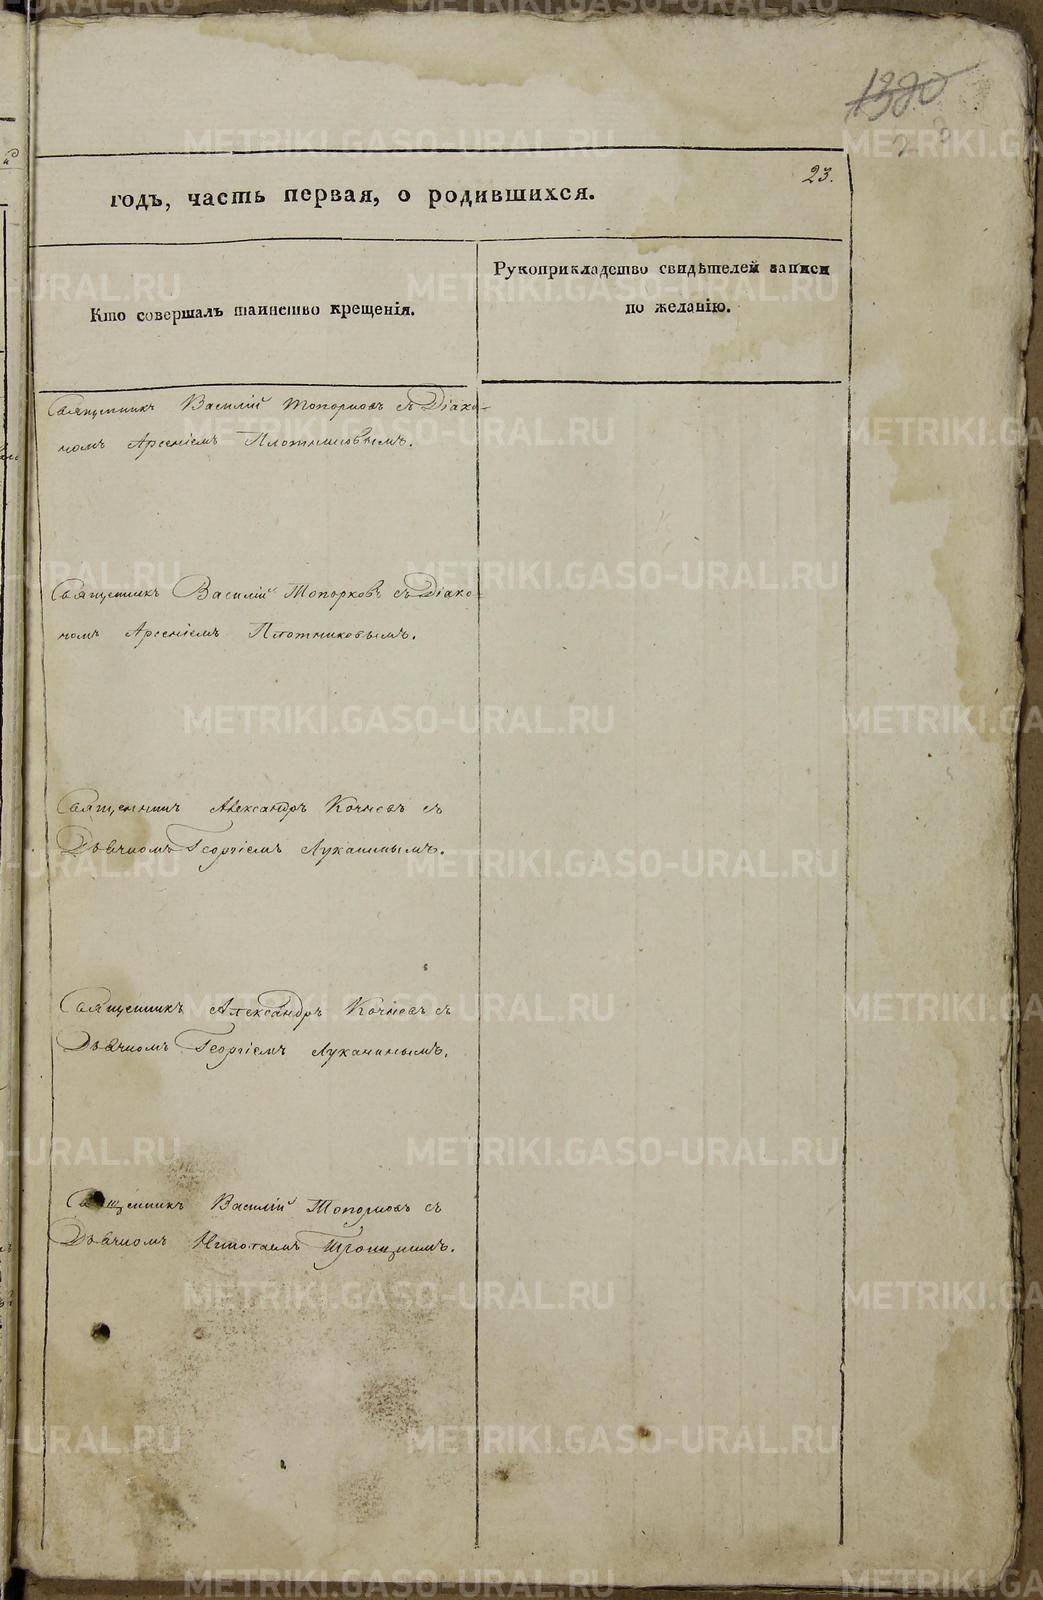 1380
23.
годъ, часть первая, о родившихся.
Кто совершалъ таинство крещенія.
Рукоприкладство свидѣтелей записи
по желанію.
Священникъ Василій Топорковъ съ Діако-
номъ Арсеніемъ Плотниковымъ.
Священникъ Василій Топорковъ съ Діако-
номъ Арсеніемъ Плотниковымъ.
Священникъ Александръ Кочневъ съ
Дьячкомъ Георгіемъ Лукаинымъ.
Священникъ Александръ Кочневъ съ
Дьячкомъ Георгіемъ
Священникъ Василій Топорковъ съ
Дьячкомъ Николаемъ Троицкимъ.
METRIKI.GASO-URAL.RU